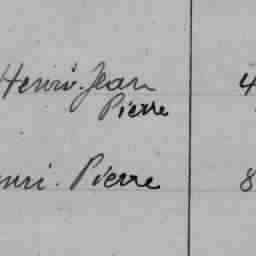 Henri. Jean 4
Pierre
nri. Pierre 8